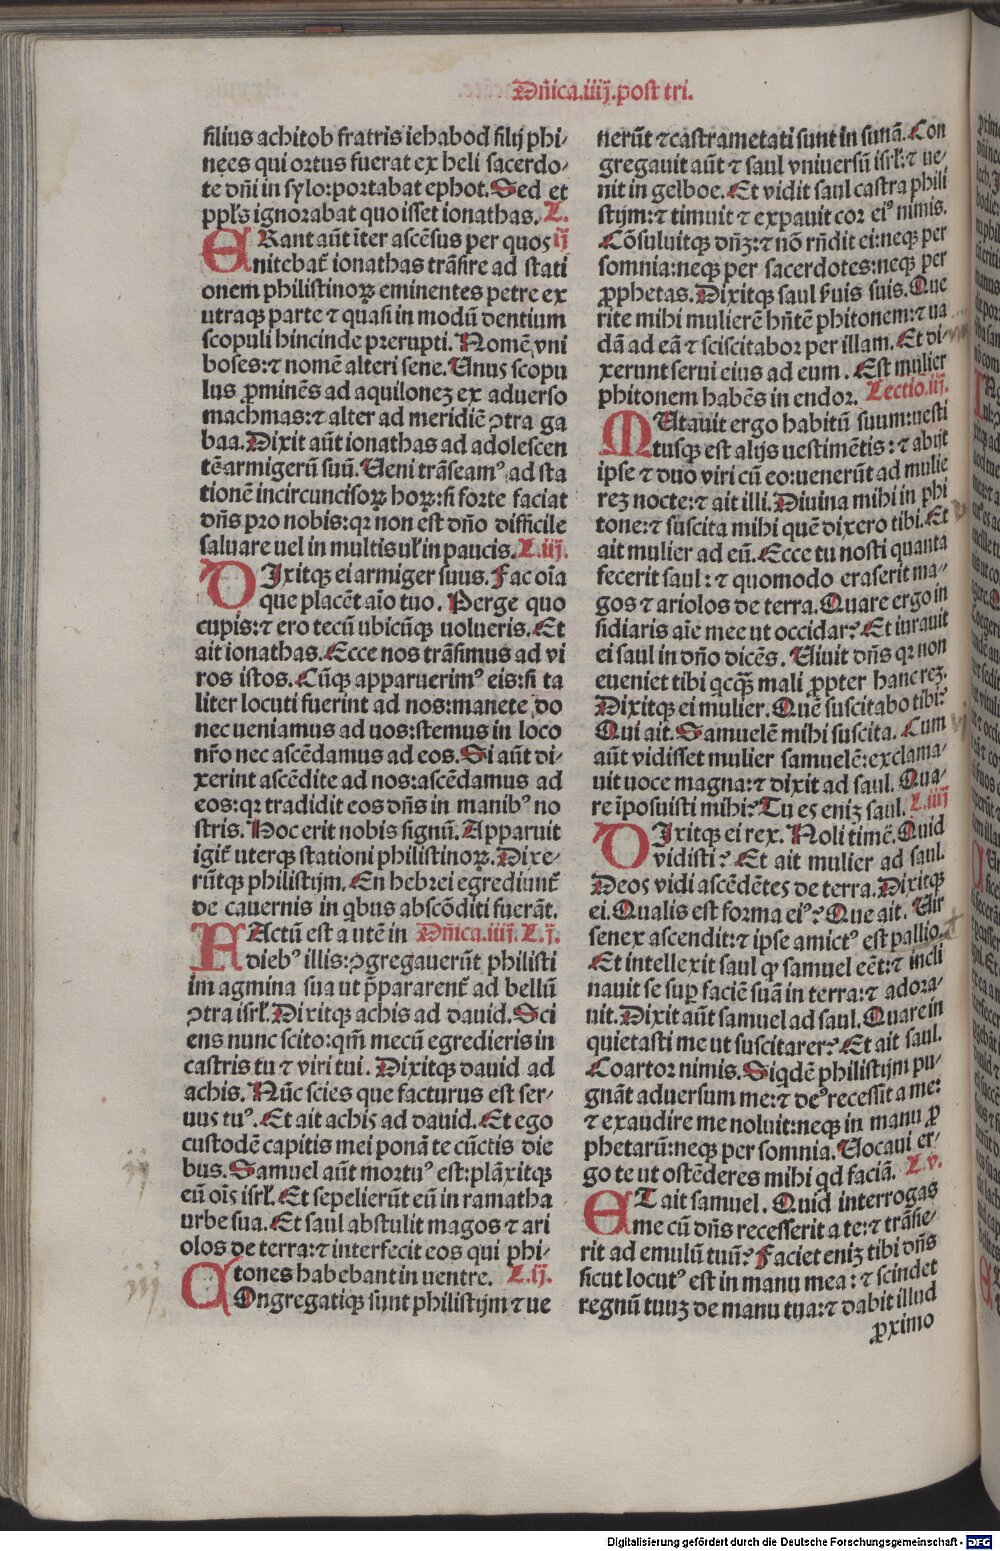 Dñica.iiij.post tri.
filius achitob fratris iehabod filij phi-
nees qui ortus fuerat ex heli sacerdo-
te dñi in sylo:portabat ephot.Sed et
ppl's ignorabat quo isset ionathas. L.
ERant aũt iter ascẽsus per quos ij
nitebat᷑ ionathas trãsire ad stati
onem philistinoꝝ eminentes petre ex
utraqꝫ parte ⁊ quasi in modũ dentium
scopuli hincinde prerupti. Nomẽ vni
boses:⁊ nomẽ alteri sene. Unus scopu
lus ꝓminẽs ad aquiloneꝫ ex aduerso
machmas:⁊ alter ad meridiẽ ꝯtra ga
baa.Dixit aũt ionathas ad adolescen
tẽ armigerũ suũ. Veni trãseamꝰ ad sta
tionẽ incircuncisoꝝ hoꝝ:si forte faciat
dñs pro nobis:qꝛ non est dño difficile
saluare uel in multis ul' in paucis. L.iij.
DIxitqꝫ ei armiger suus. Fac oĩa
que placẽt aĩo tuo. Perge quo
cupis:⁊ ero tecũ ubicũqꝫ uolueris. Et
ait ionathas. Ecce nos trãsimus ad vi
ros istos. Cũqꝫ apparuerimꝰ eis:si ta
liter locuti fuerint ad nos:manete do
nec ueniamus ad uos:stemus in loco
nr̃o nec ascẽdamus ad eos. Si aũt di-
xerint ascẽdite ad nos:ascẽdamus ad
eos:qꝛ tradidit eos dñs in manibꝰ no
stris. Hoc erit nobis signũ. Apparuit
igit᷑ uterqꝫ stationi philistinoꝝ. Dixe-
rũtqꝫ philistijm. En hebrei egrediunt᷑
de cauernis in qbus abscõditi fuerãt.
FActũ est autẽ in Dñica.iiij.L.j.
diebꝰ illis:ꝯgregauerũt philisti
im agmina sua ut p̃pararent᷑ ad bellũ
ꝯtra isrl'. Dixitqꝫ achis ad dauid. Sci
ens nunc scito:qm̃ mecũ egredieris in
castris tu ⁊ viri tui. Dixitqꝫ dauid ad
achis. Nũc scies que facturus est ser-
uus tuꝰ. Et ait achis ad dauid. Et ego
custodẽ capitis mei ponã te cũctis die
bus. Samuel aũt mortuꝰ est:plãxitqꝫ
eũ oĩs isrl'. Et sepelierũt eũ in ramatha
urbe sua. Et saul abstulit magos ⁊ ari
olos de terra:⁊ interfecit eos qui phi-
tones habebant in uentre. L.ij.
COngregatiqꝫ sunt philistijm ⁊ ue
nerũt ⁊ castrametati sunt in sunã. Con
gregauit aũt ⁊ saul vniuersũ isrl':⁊ ue-
nit in gelboe. Et vidit saul castra phili
stijm:⁊ timuit ⁊ expauit cor eiꝰ nimis.
Cõsuluitqꝫ dñꝫ:⁊ nõ rñdit ei:neqꝫ per
somnia:neqꝫ per sacerdotes:neqꝫ per
ꝓphetas. Dixitqꝫ saul suis suis. Que
rite mihi mulierẽ hñtẽ phitonem:⁊ ua
dã ad eã ⁊ sciscitabor per illam. Et di-
xerunt serui eius ad eum. Est mulier
phitonem habẽs in endor. Lectio.iij.
MUtauit ergo habitũ suum:uesti
tusqꝫ est alijs uestimẽtis: ⁊ abijt
ipse ⁊ duo viri cũ eo:uenerũt ad mulie
reꝫ nocte:⁊ ait illi. Diuina mihi in phi
tone:⁊ suscita mihi quẽ dixero tibi. Et
ait mulier ad eũ. Ecce tu nosti quanta
fecerit saul: ⁊ quomodo eraserit ma-
gos ⁊ ariolos de terra. Quare ergo in
sidiaris aĩe mee ut occidar? Et iurauit
ei saul in dño dicẽs. Viuit dñs qꝛ non
eueniet tibi qcqꝫ mali ꝓpter hanc reꝫ.
Dixitqꝫ ei mulier. Quẽ suscitabo tibi?
Qui ait. Samuelẽ mihi suscita. Cum
aũt vidisset mulier samuelẽ:exclama-
uit uoce magna:⁊ dixit ad saul. Qua-
re ĩposuisti mihi? Tu es eniꝫ saul. L.iiij
DIxitqꝫ ei rex. Noli timẽ. Quid
vidisti? Et ait mulier ad saul.
Deos vidi ascẽdẽtes de terra. Dixitqꝫ
ei. Qualis est forma eiꝰ? Que ait. Vir
senex ascendit:⁊ ipse amictꝰ est pallio.
Et intellexit saul ꝙ samuel eẽt:⁊ incli
nauit se suꝑ faciẽ suã in terra:⁊ adora-
uit. Dixit aũt samuel ad saul. Quare in
quietasti me ut suscitarer? Et ait saul.
Coartor nimis. Siqdẽ philistijm pu-
gnãt aduersum me:⁊ deꝰ recessit a me:
⁊ exaudire me noluit:neqꝫ in manu ꝓ
phetarũ:neqꝫ per somnia. Vocaui er-
go te ut ostẽderes mihi qd faciã. L.v.
ET ait samuel. Quid interrogas
me cũ dñs recesserit a te:⁊ trãsie-
rit ad emulũ tuũ? Faciet eniꝫ tibi dñs
sicut locutꝰ est in manu mea: ⁊ scindet
regnũ tuuꝫ de manu tua:⁊ dabit illud
ꝓximo
ij
iij
Digitalisierung gefördert durch die Deutsche Forschungsgemeinschaft - DFG